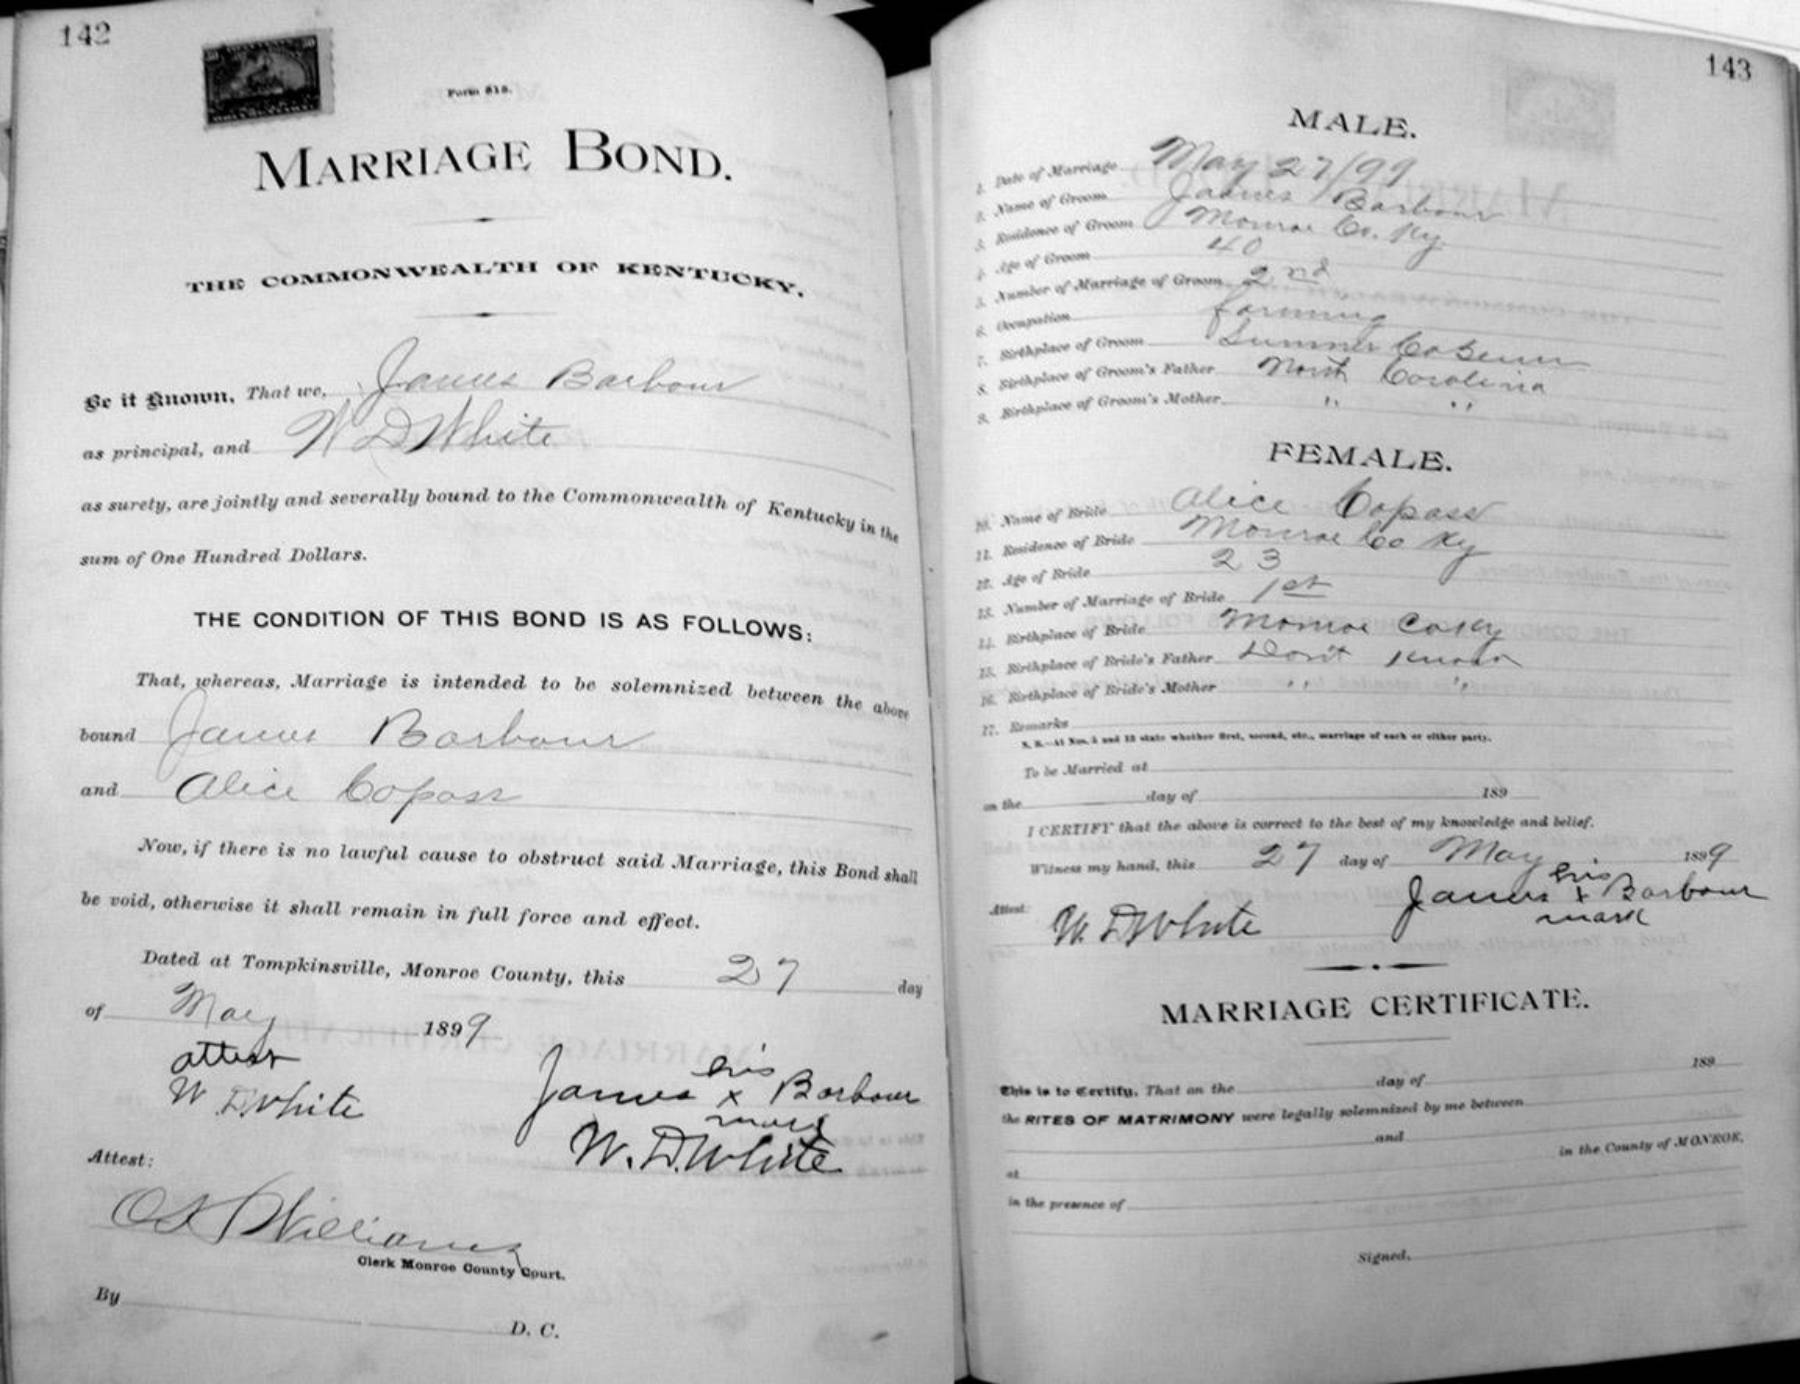 142
Form 818.
MARRIAGE BOND.
THE COMMONWEALTH OF KENTUCKY.
Be it Known, That we, James Barbour
as principal, and W D White
as surety, are jointly and severally bound to the Commonwealth of Kentucky in the
sum of One Hundred Dollars.
THE CONDITION OF THIS BOND IS AS FOLLOWS:
That, whereas, Marriage is intended to be solemnized between the above
bound James Barbour
and Alice Copass
Now, if there is no lawful cause to obstruct said Marriage, this Bond shall
be void, otherwise it shall remain in full force and effect.
Dated at Tompkinsville, Monroe County, this 27 day
of May 1899
attest
W. D. White
his
James x Barbour
mark
W. D. White
Attest:
Williams
Clerk Monroe County Court.
By
D. C.
143
MALE.
1. Date of Marriage May 27/99
2. Name of Groom James Barbour
3. Residence of Groom Monroe Co. Ky
4. Age of Groom 40
5. Number of Marriage of Groom 2nd
6. Occupation farming
7. Birthplace of Groom Sumner Co
8. Birthplace of Groom's Father North Carolina
9. Birthplace of Groom's Mother " "
FEMALE.
10. Name of Bride Alice Copass
11. Residence of Bride Monroe Co Ky
12. Age of Bride 23
13. Number of Marriage of Bride 1st
14. Birthplace of Bride Monroe Co Ky
15. Birthplace of Bride's Father Don't know
16. Birthplace of Bride's Mother " "
17. Remarks
N. B.—At Nos. 5 and 13 state whether first, second, etc., marriage of each or either party.
To be Married at
on the day of 189
I CERTIFY that the above is correct to the best of my knowledge and belief.
Witness my hand, this 27 day of May 1899
his
James x Barbour
mark
Attest: W. D. White
MARRIAGE CERTIFICATE.
This is to Certify, That on the day of 189
the RITES OF MATRIMONY were legally solemnized by me between
and
at in the County of MONROE,
in the presence of
Signed,